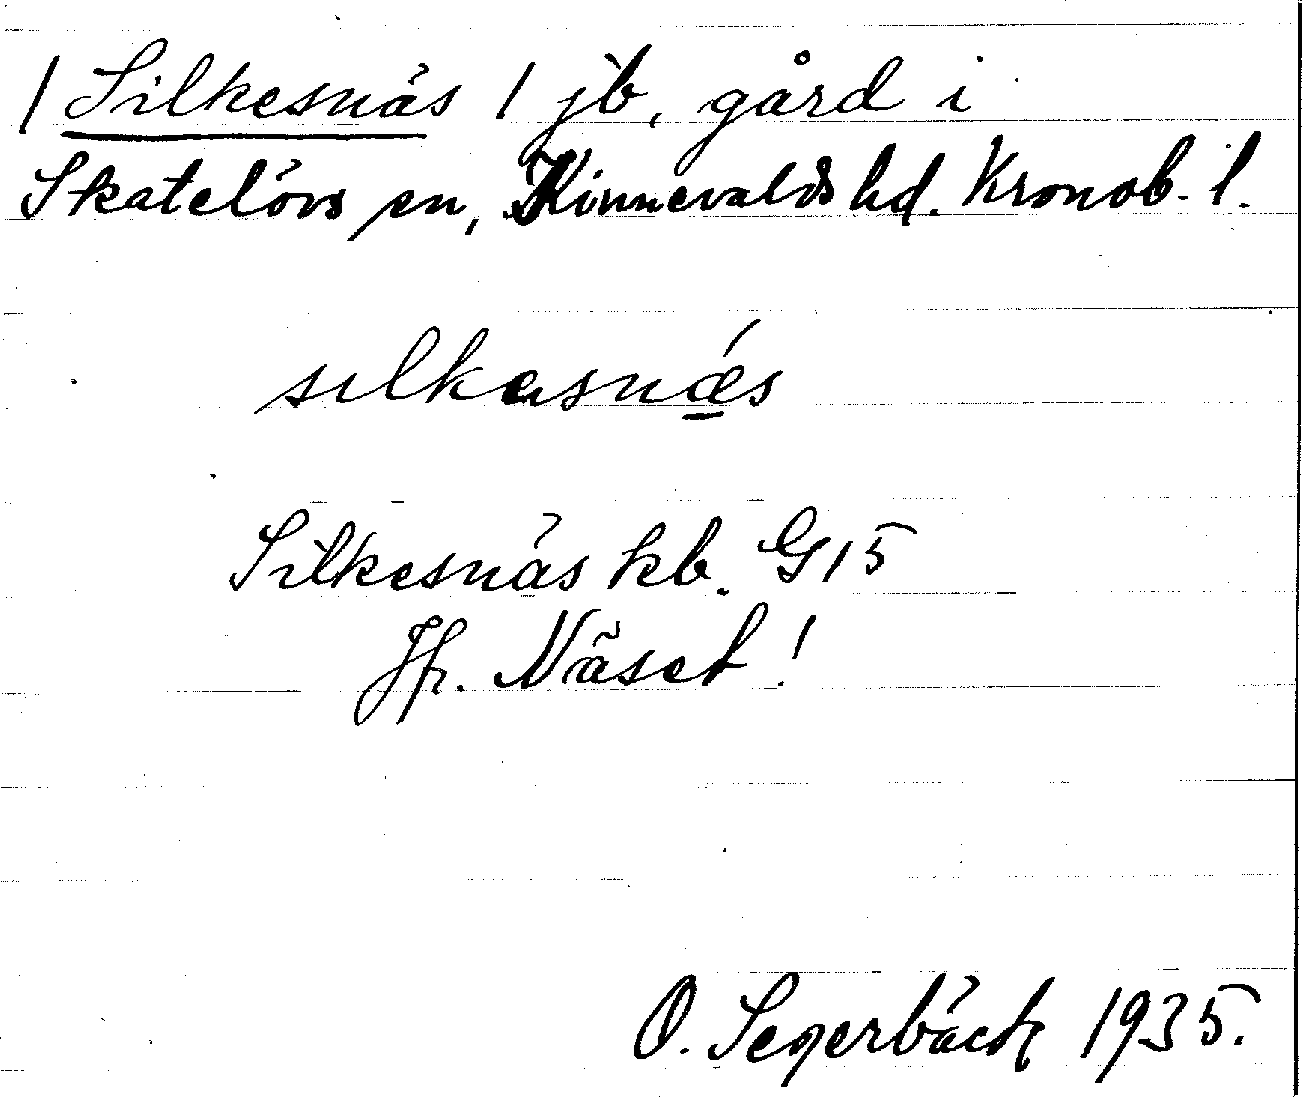 / Silkesnäs / jb, gård i
Skatelövs sn, Kinnevalds hd. Kronob. l.
sılkasnǽs
Silkesnäs kb. G15
Jfr. Näset!
O. Segerbäck 1935.